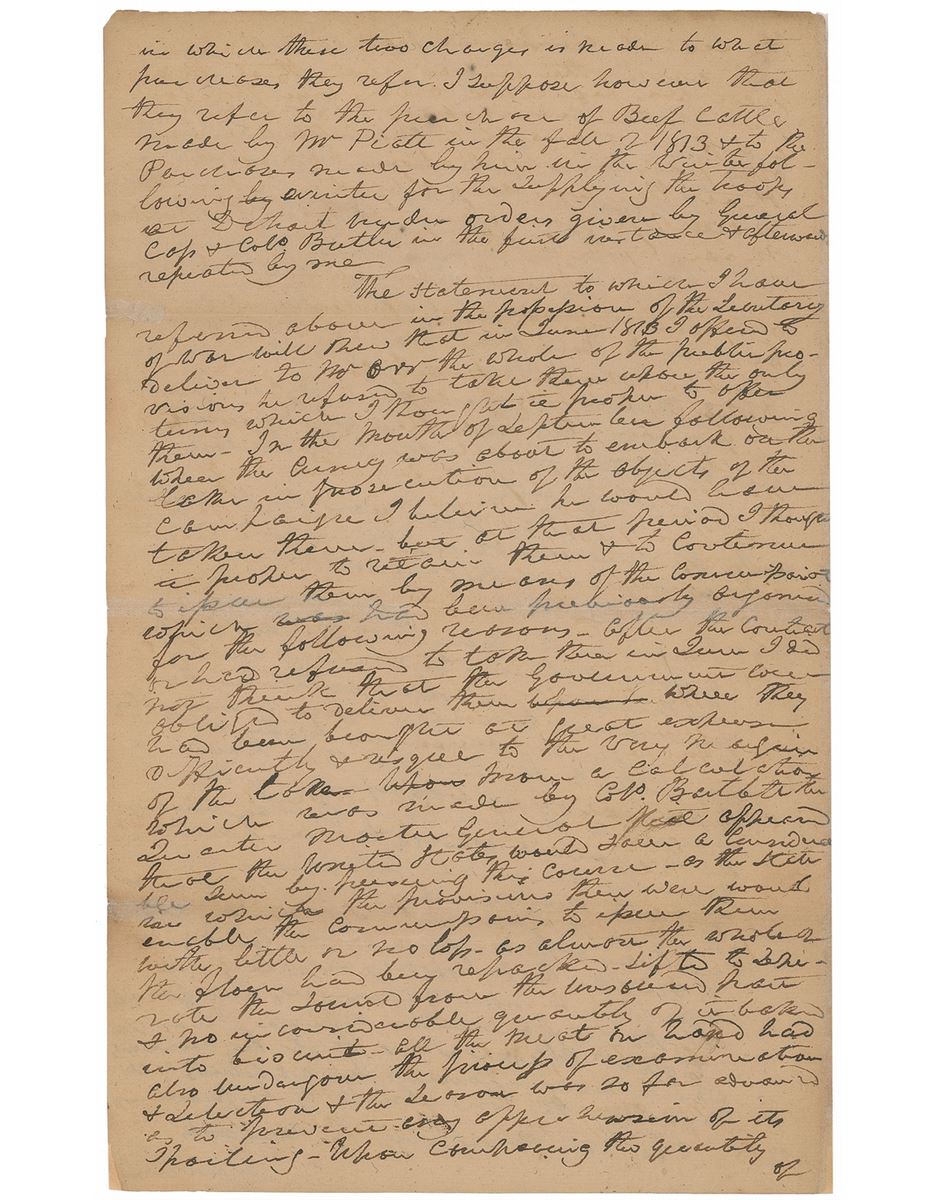 in which these two charges is made to what
purchases they refer. I suppose however that
they refer to the purchase of Beef Cattle
made by Mr Piatt in the fall of 1813 & to the
Purchases made by him in the Winter fol-
lowing by for the supplying the troops
at Detroit under orders given by General
Cass & Colo. Butler in the first instance & afterwards
repeated by me
The statement to which I have
referred above in the possession of the Secretary
of War will shew that in June 1813 I offered to
deliver to Mr Orr the whole of the public pro-
visions he refused to take them upon the only
terms which I thought it proper to offer
them - In the Month of September following
when the Army was about to embark on the
Lake in prosecution of the objects of the
campaign I believe he would have
taken them - but at that period I thought
it proper to retain them & to continue
to issue them by means of the Commissariat
which was had been previously organised
for the following reasons - after the Contract
or had refused to take them in June I did
not think that the Government were
obliged to deliver them when they
had been brought at great expense
difficulty & risque to the very margin
of the Lake Upon from a Calculation
which was made by Colo. Bartlett the
Quarter Master General it appeared
that the United States would save a considera
ble sum by pursuing this Course - as the state
in which the provisions then were would
enable the Commissaries to issue them
with little or no loss - as almost the whole of
the flour had been repacked - sifted to sepe-
rate the sound from the unsound part
& no inconsiderable quantity of it baked
into biscuit - all the meat on hand had
also undergone the process of examination
& selection & the Season was so far advanced
as to prevent any apprehension of its
spoiling - Upon comparing the quantity
of